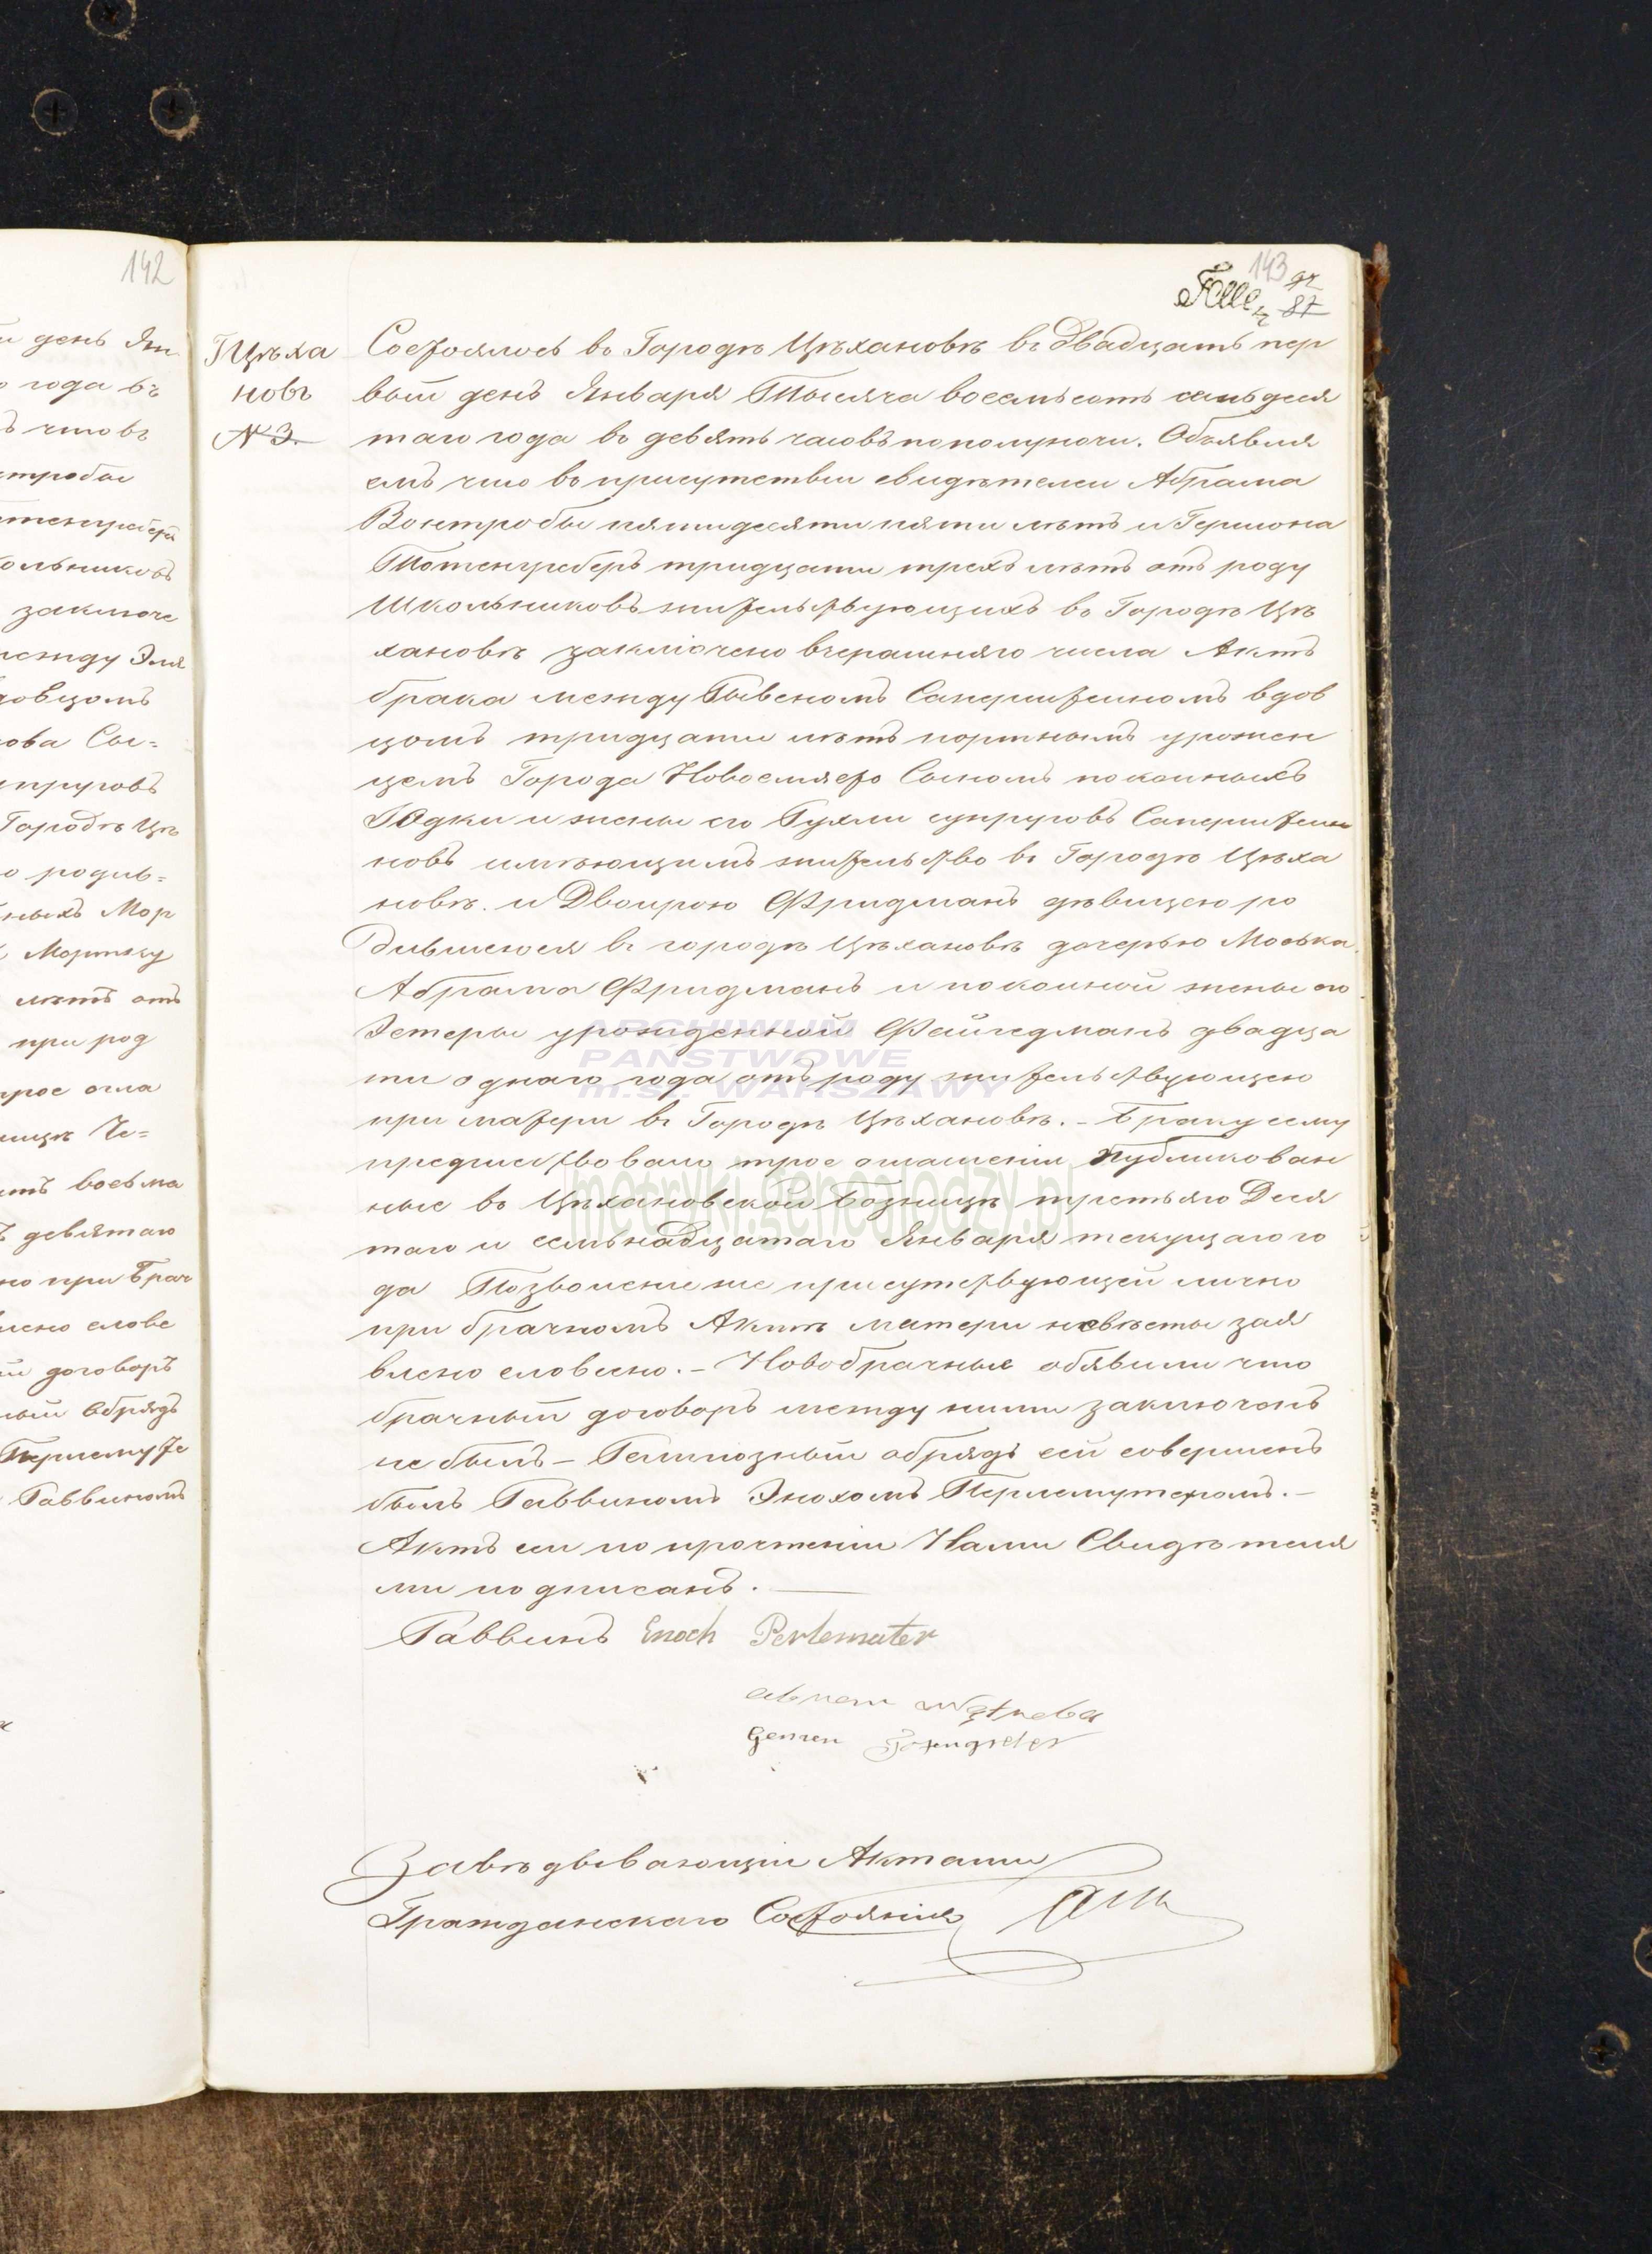 142
143
87
й день Ян
года въ
что въ
заключе
между Эля
довцомъ
Сы=
супруговъ
Городѣ Цѣ
родив=
Мор
лѣтъ отъ
при род
трое огла
восьма
девятаго
при Брач
слове
договоръ
обрядъ
Раввиномъ
Г Цѣха
новъ
№ 3.
Состоялось въ Городѣ Цѣхановѣ въ двадцать пер
вый день Января Тысяча восемьсотъ семьдеся
таго года въ девять часовъ пополуночи. Объявля
емъ что въ присутствіи свидѣтелей Абрама
Вонтробы пятидесяти пяти лѣтъ и Гершона
Тотенгреберъ тридцати трехъ лѣтъ отъ роду
Школьниковъ жительствующихъ въ Городѣ Цѣ
хановѣ заключено вчерашняго числа Актъ
брака между Рывеномъ Саперштейномъ вдов
цомъ тридцати лѣтъ портнымъ урожен
цемъ Города Новоемясто Сыномъ покойныхъ
Юдки и жены его Рухли супруговъ Саперштей
новъ имѣющимъ жительство въ Городѣ Цѣха
новѣ. и Двойрою Фридманъ дѣвицею ро
дившеюся въ городѣ Цѣхановѣ дочерью Моська
Абрама Фридманъ и покойной жены его
Эстеры урожденной Файгедманъ двадца
ти одного года отъ роду жительствующею
при матери въ Городѣ Цѣхановѣ. - Браку сему
предшествовало трое оглашеніи публикован
ные въ Цѣхановской Божницѣ третьяго Деся
таго и семьнадцатаго Января текущаго го
да Позволеніе же присутствующей лично
при брачномъ Актѣ матери невѣсты зая
влено словесно. - Новобрачные объявили что
брачный договоръ между ними заключенъ
не былъ - Религіозный обрядъ сей совершенъ
былъ Раввиномъ Энохомъ Перлемутеромъ. -
Актъ сей по прочтеніи Нами Свидѣтеля
ми подписанъ.
Раввинъ Enoch Perlemuter
Wątroba
Totengreber
Завѣдывающій Актами
Гражданскаго Состоянія
ARCHIWUM
PAŃSTWOWE
m.st. WARSZAWY
metryki.genealodzy.pl